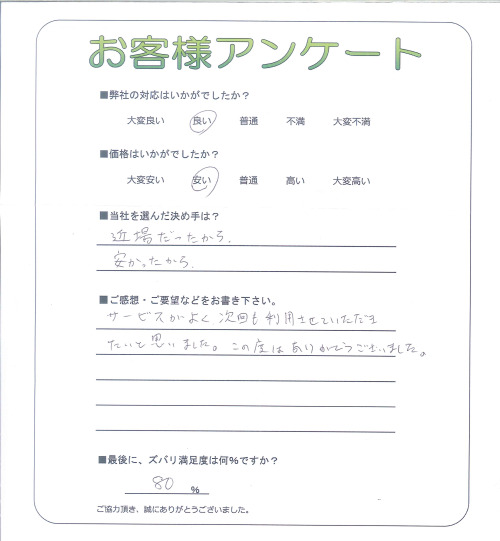 お客様アンケート
■弊社の対応はいかがでしたか？
大変良い 良い 普通 不満 大変不満
■価格はいかがでしたか？
大変安い 安い 普通 高い 大変高い
■当社を選んだ決め手は？
近場だったから.
安かったから.
■ご感想・ご要望などをお書き下さい。
サービスがよく 次回も利用させていただき
たいと思いました。この度はありがとうございました。
■最後に、ズバリ満足度は何%ですか？
80 %
ご協力頂き、誠にありがとうございました。